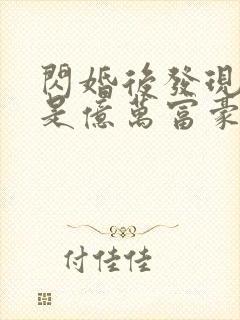 閃婚後發現
是億萬富豪
付佳佳